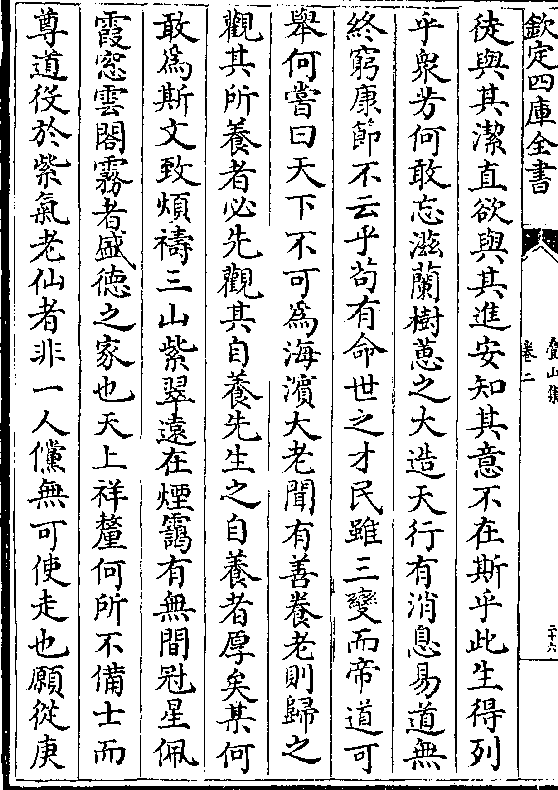 欽定四庫全書
疊山集
卷二
二十六
徒與其潔直欲與其進安知其意不在斯乎此生得列
乎衆芳何敢忘滋蘭樹蕙之大造天行有消息易道無
終窮康節不云乎苟有命世之才民雖三變而帝道可
舉何嘗曰天下不可為海濵大老聞有善養老則歸之
觀其所養者必先觀其自養先生之自養者厚矣某何
敢為斯文致煩禱三山紫翠遠在煙靄有無間冠星佩
霞窓雲閣霧者盛德之家也天上祥釐何所不備士而
尊道役於紫氣老仙者非一人儻無可使走也願從庚